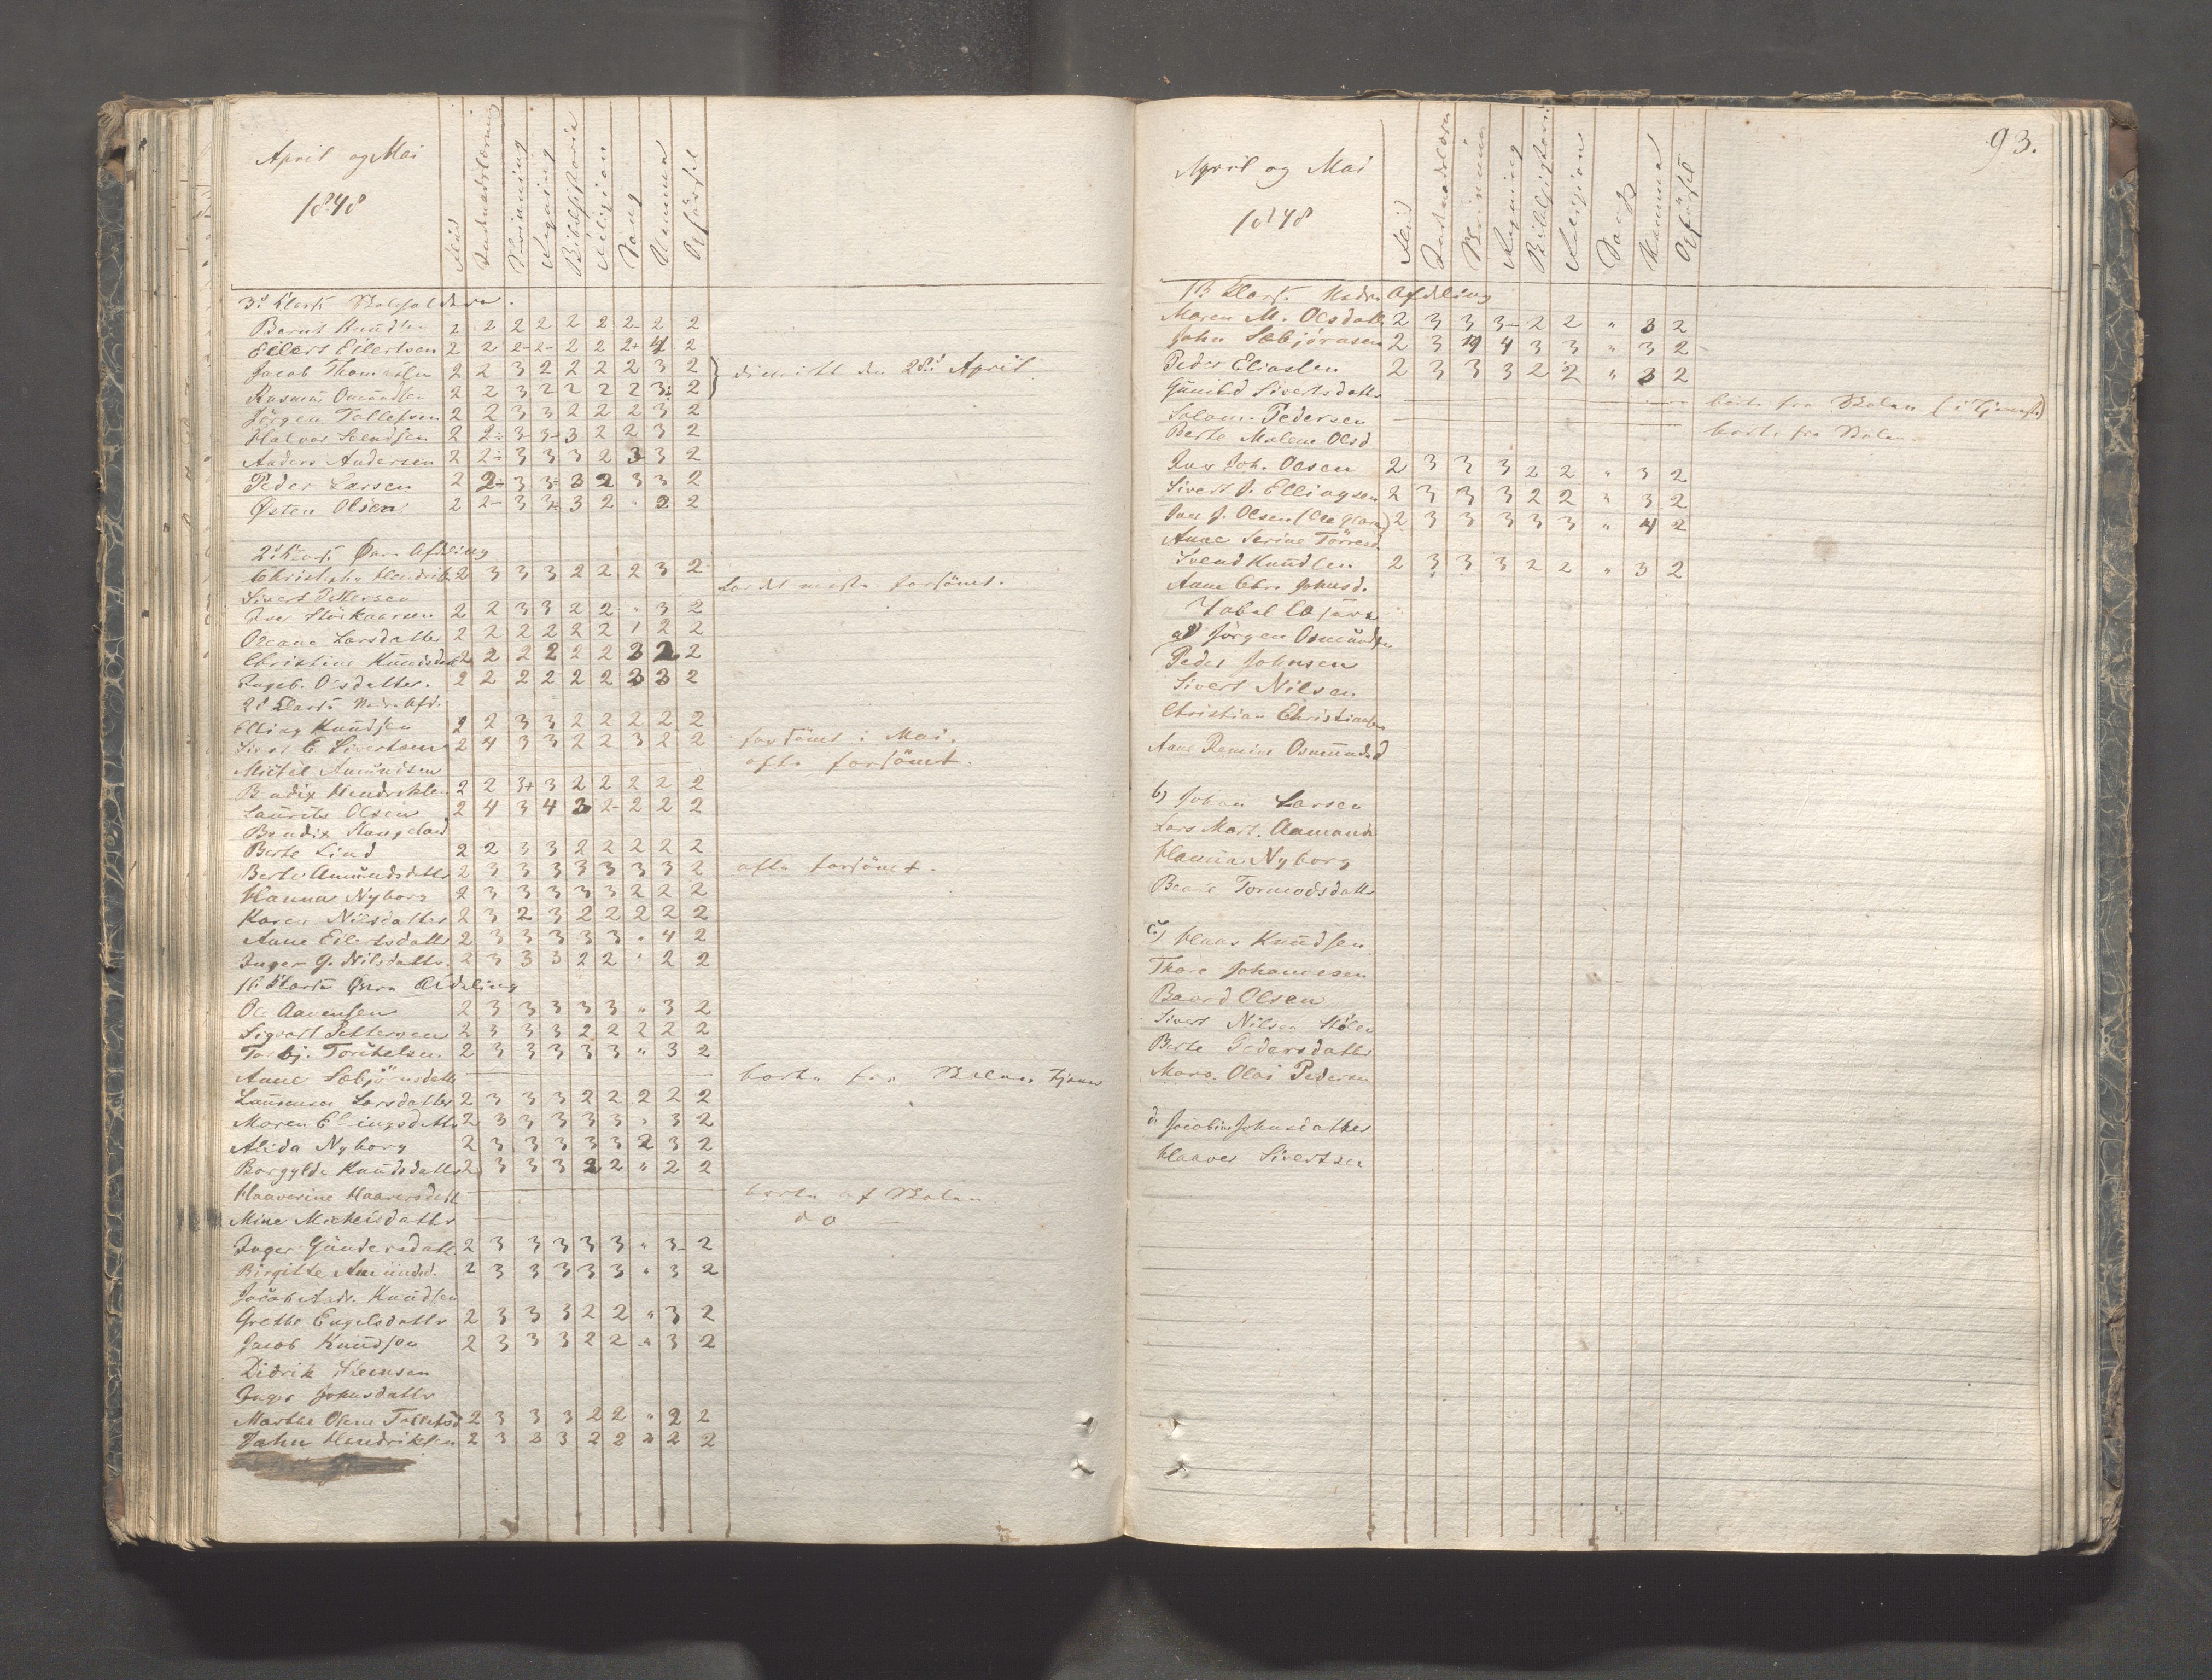 April og Mai
1848
Flid
Indenadslæsning
Skrivning
Regning
Bibelhistorie
Religion
Sang
Nemme
Opførsel
3die Klasse
Bernt Knudsen 2 2 2 2 2 2 2- 2 2
Eilert Eilertsen 2 2 2- 2- 2 2 2+ 4 2
Jacob Thomassen 2 2 3 2 2 2 2 3 2
dimitt den 28de April
Rasmus Omundsen 2 2 3 2 2 2 2 3 2
Jörgen Tollefsen 2 2 3 3 2 2 2 3 2
Halvor Svendsen 2 2 3 3 3 2 2 3 2
Anders Andersen 2 2 3 3 3 2 3 3 2
Peder Larsen 2 2 3 3 3 2 3 3 2
Østen Olsen 2 2- 3 3 3 2 " 2 2
2d Klasse Øvre Afdeling
Christian Hendriks 2 3 3 3 2 2 2 3 2
Sivert Pettersen
for det meste forsömt.
Iver Störkaarsen 2 2 3 3 2 2 " 3 2
Oleane Larsdatter 2 2 2 2 2 2 1 2 2
Christine Knudsdatt 2 2 2 2 2 2 3 2 2
Ingeb. Olsdatter. 2 2 2 2 2 2 3 3 2
2d Klasse Nedre Afd.
Elling Knudsen 2 2 3 3 2 2 2 2 2
Sivert E. Sivertsen 2 4 3 3 2 2 3 2 2
forsömt i Mai.
Mickel Amundsen
ofte forsömt.
Bendix Hendriksen 2 2 3+ 3 2 2 2 2 2
Laurits Olsen 2 4 3 4 3 2- 2 2 2
Bendix Stangeland
Berte Lind 2 2 3 3 2 2 2 2 2
Berte Amundsdatter 2 3 3 3 3 3 3 3 2
ofte forsömt.
Hanna Nyborg 2 3 3 3 3 3 2 2 2
Karen Nilsdatter 2 3 2 3 2 2 2 2 2
Anne Eilertsdatter 2 3 3 3 3 3 " 4 2
Inger G. Nilsdatter. 2 3 3 3 2 2 " 2 2
1ste Klasse Øvre Afdeling
Ole Aanensen 2 3 3 3 3 3 " 3 2
Sigvart Pettersen 2 3 3 3 2 2 2 2 2
Torbj. Torkelsen 2 3 3 3 3 3 " 3 2
Anne Sæbjörnsdatte
borte fra Skolen
Laurense Larsdatter 2 3 3 3 2 2 2 2 2
Maren Ellingsdatter 2 3 3 3 3 3 " 3 2
Alida Nyborg 2 3 3 3 3 3 2 3 2
Borgylde Knudsdatter 2 3 3 3 2 2 " 2 2
Haaverine Haaversdatt
borte af Skolen
Mine Michelsdatter
do
Inger Gundersdatt 2 3 3 3 3 3 " 3 2
Birgitte Amundsd. 2 3 3 3 3 3 " 3 2
Jacob Andr. Knudsen
Grethe Engelsdatter 2 3 3 3 2 2 " 3 2
Jacob Knudsen 2 3 3 3 2 2 " 3 2
Didrik
Inger Johnsdatter
Marthe Olene Tollefsd 2 3 3 3 2 2 " 2 2
John Hendriksen 2 3 3 3 2 2 2 2 2
93.
April og Mai
1848
Flid
Indenadslæsn
Skrivning
Regning
Bibelhistorie
Religion
Sang
Nemme
Opførsel
1ste Klasse. Nedre Afdeling
Maren M. Olsdatt 2 3 3 3- 2 2 " 3 2
John Sæbjörnsen 2 3 4 4 3 3 " 3 2
Peder Eliassen 2 3 3 3 2 2 " 3 2
Gunild Sivertsdatter
borte fra Skolen (i Tjeneste)
Salom. Pedersen
borte fra Skolen
Berte Malene Olsd
Iver Joh. Olsen 2 3 3 3 2 2 " 3 2
Sivert J. Ellingsen 2 3 3 3 2 2 " 3 2
Iver J. Olsen 2 3 3 3 3 3 " 4 2
Anne Serine Törresd
Svend Knudsen 2 3 3 3 2 2 " 3 2
Anne Chr. Johnsd.
Tabel
a) Jörgen Osmundsen
Peder Johnsen
Sivert Nilsen
Christian Christiansen
Anne Remine Osmundsd
b) Johan Larsen
Lars Mart. Aamund
Hanna Nyborg
Berte Tormodsdatter
c.) Hans Knudsen
Thore Johannesen
Baard Olsen
Sivert Nilsen
Berte Pedersdatter
Mons. Olai Pedersen
d. Jacobine Johnsdatter
Haaver Sivertsen